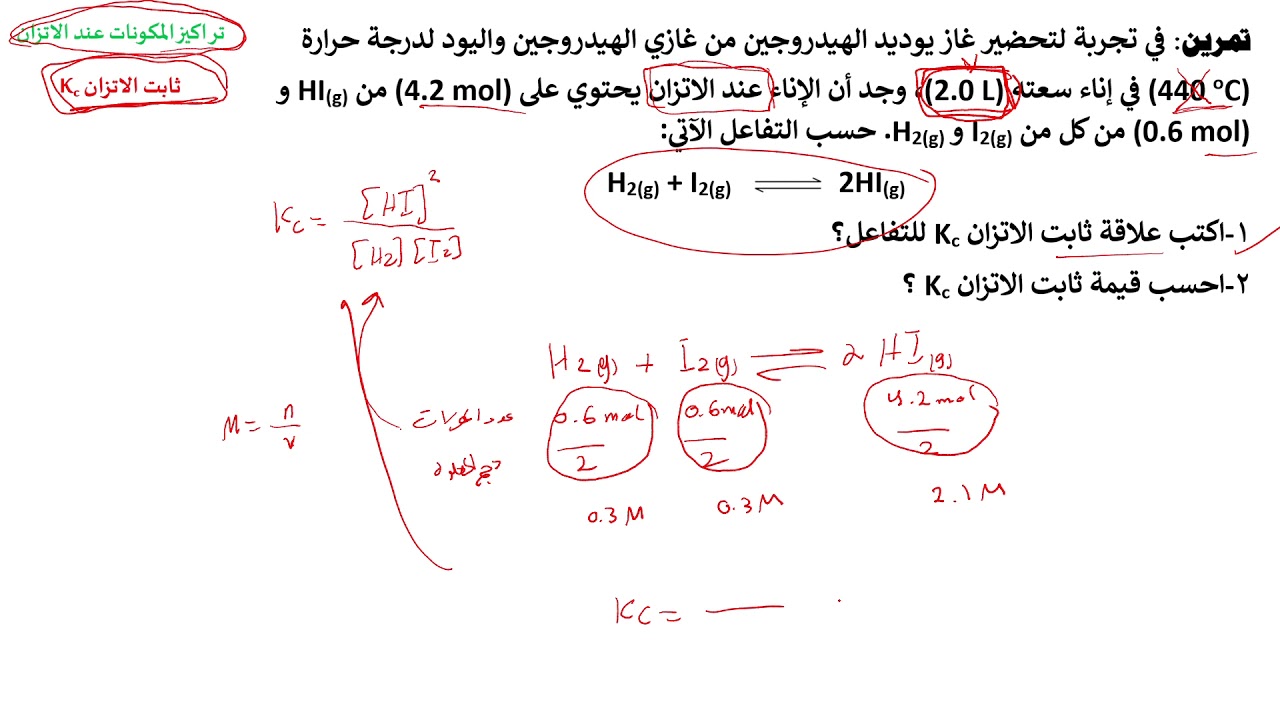 تراكيز المكونات عند الاتزان
ثابت الاتزان Kc
تمرين: في تجربة لتحضير غاز يوديد الهيدروجين من غازي الهيدروجين واليود لدرجة حرارة
(440 °C) في إناء سعته (2.0 L)، وجد أن الإناء عند الاتزان يحتوي على (4.2 mol) من HI(g) و
(0.6 mol) من كل من I2(g) و H2(g). حسب التفاعل الآتي:
H2(g) + I2(g) ⇌ 2HI(g)
١-اكتب علاقة ثابت الاتزان Kc للتفاعل؟
٢-احسب قيمة ثابت الاتزان Kc ؟
Kc = [HI]² / [H2][I2]
H2(g) + I2(g) ⇌ 2 HI(g)
عدد المولات
0.6 mol / 2 0.6 mol / 2 4.2 mol / 2
M = n / v
0.3 M 0.3 M 2.1 M
Kc = —